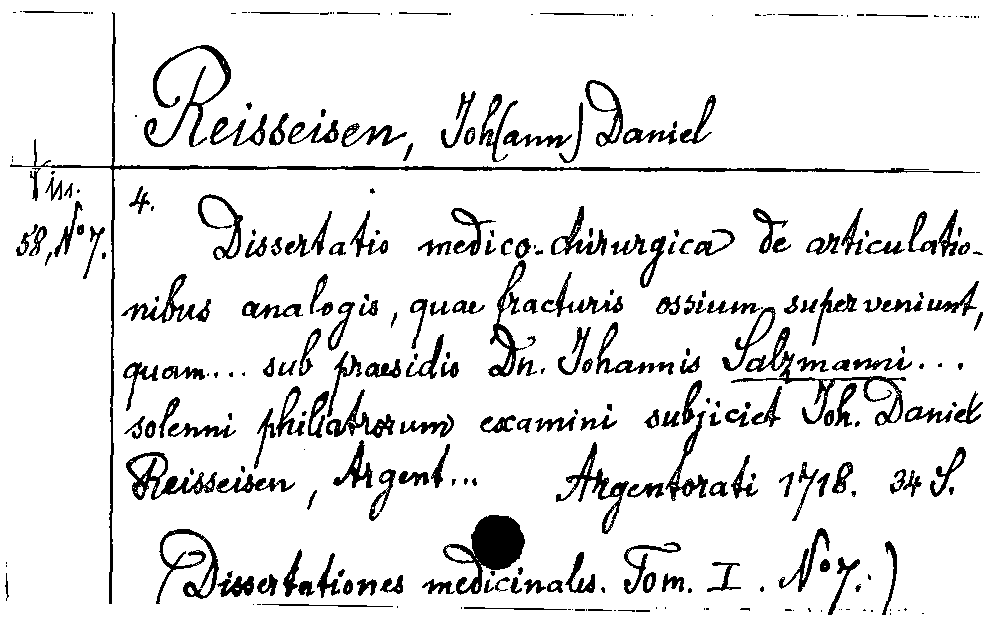 Reisseisen, Joh(ann) Daniel
Diss.
58, No 7.
4.
Dissertatio medico-chirurgica de articulatio-
nibus analogis, quae fracturis ossium superveniunt,
quam... sub praesidio Dn. Johannis Salzmanni...
solenni philiatrorum examini subjiciet Joh. Daniel
Reisseisen, Argent... Argentorati 1718. 34 S.
(Dissertationes medicinales. Tom. I. No 7.)